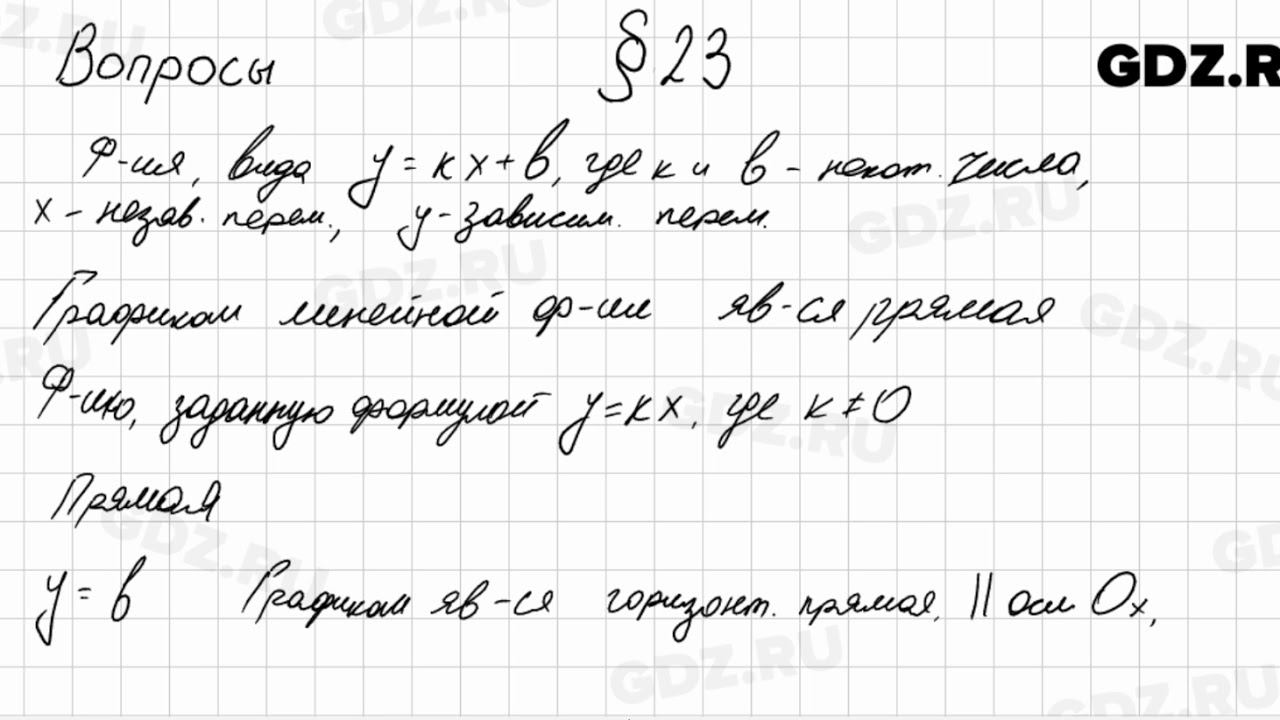 Вопросы § 23
GDZ.R
Ф-ия, вида y = кx + b, где к и b - некот. числа,
x - незав. перем., y - зависим. перем.
Графиком линейной ф-ии яв-ся прямая
Ф-ию, заданную формулой y = кx, где к ≠ 0
Прямая
y = b Графиком яв-ся горизонт. прямая, || оси Ox,